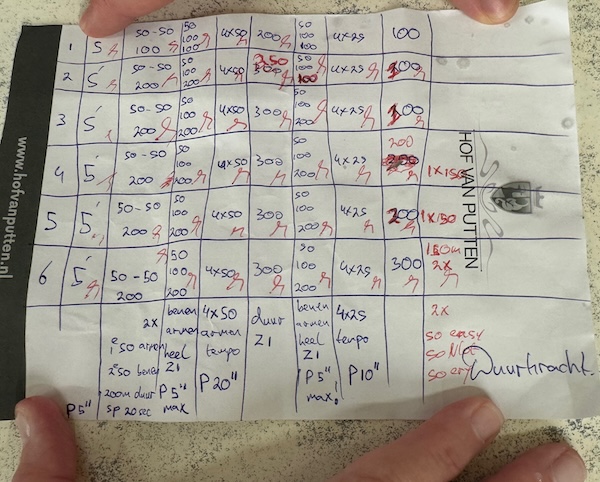 1 5' 50-50 100 50 100 100 4x50 200 50 100 100 4x25 100
2 5' 50-50 200 50 100 200 4x50 250 50 100 100 4x25 100
3 5' 50-50 200 50 100 200 4x50 300 50 100 200 4x25 100
4 5' 50-50 200 50 100 200 4x50 300 50 100 200 4x25 200 1x150
5 5' 50-50 200 50 100 200 4x50 300 50 100 200 4x25 200 1x150
6 5' 50-50 200 50 100 200 4x50 300 50 100 200 4x25 300 150m 2x
P5"
2x
50 armen
50 benen
200m duur
sp 20 sec
benen
armen
heel
Z1
P5"
max
4x50
armen
tempo
P20"
duur
Z1
benen
armen
heel
Z1
P5"
max!
4x25
tempo
P10"
2x
50 easy
50
50
Duurkracht.
HOF VAN PUTTEN
www.hofvanputten.nl